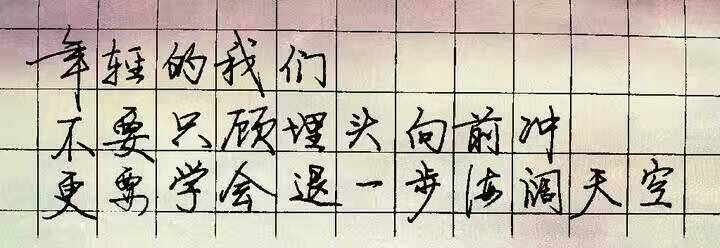 年轻的我们
不要只顾埋头向前冲
更要学会退一步海阔天空